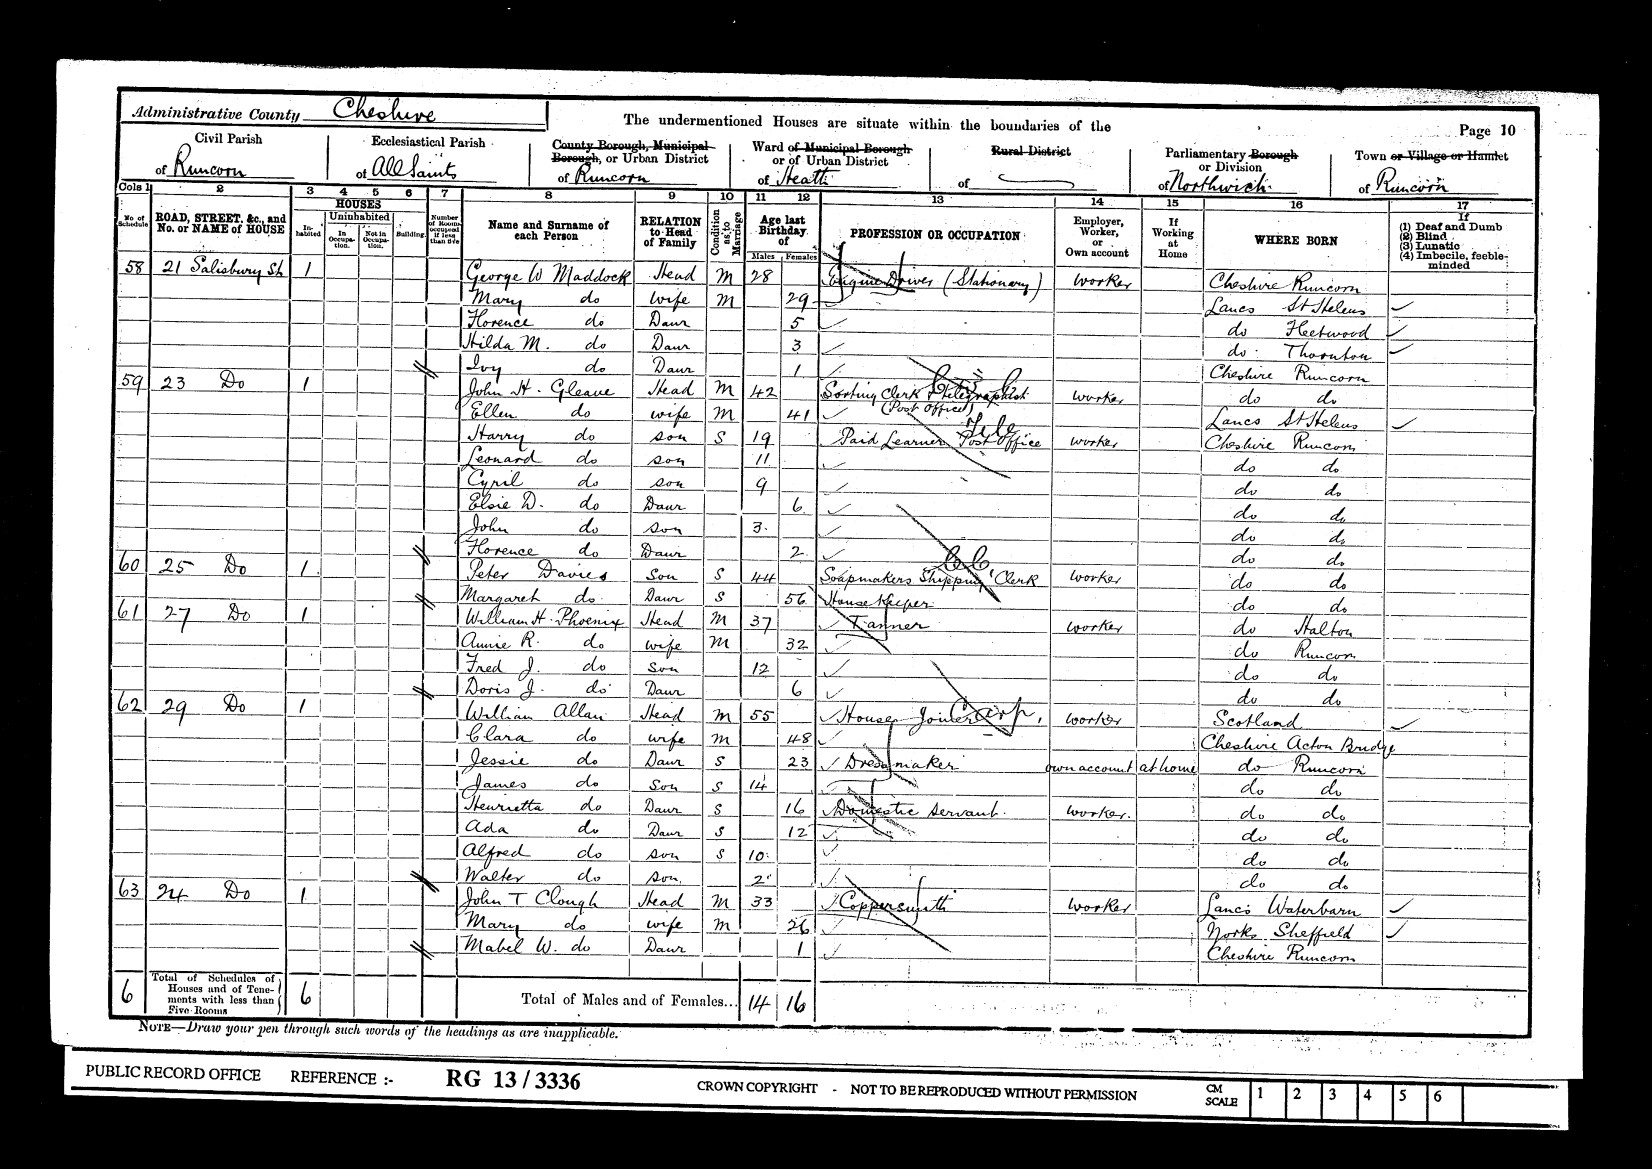 Administrative County Cheshire
The undermentioned Houses are situate within the boundaries of the
Page 10
Civil Parish of Runcorn
Ecclesiastical Parish of All Saints
County Borough, Municipal Borough, or Urban District of Runcorn
Ward of Municipal Borough or of Urban District of Heath
Rural District of
Parliamentary Borough or Division of Northwich
Town or Village or Hamlet of Runcorn
Cols 1 2 3 4 5 6 7 8 9 10 11 12 13 14 15 16 17
No. of Schedule
ROAD, STREET, &c., and No. or NAME of HOUSE
HOUSES
Inhabited
Uninhabited
In Occupation.
Not in Occupation.
Building.
Number of Rooms occupied if less than five
Name and Surname of each Person
RELATION to Head of Family
Condition as to Marriage
Age last Birthday of
Males Females
PROFESSION OR OCCUPATION
Employer, Worker, or Own account
If Working at Home
WHERE BORN
If
(1) Deaf and Dumb
(2) Blind
(3) Lunatic
(4) Imbecile, feeble-minded
58 21 Salisbury St 1 George W Maddock Head M 28 Engine Driver (Stationary) worker Cheshire Runcorn
Mary do wife M 29 Lancs St Helens
Florence do Daur 5 do Fleetwood
Hilda M. do Daur 3 do Thornton
Ivy do Daur 1 Cheshire Runcorn
59 23 Do 1 John H. Gleave Head M 42 Sorting Clerk & Telegraphist (Post Office) worker do do
Ellen do wife M 41 Lancs St Helens
Harry do son S 19 Paid Learner Post Office Tele worker Cheshire Runcorn
Leonard do son 11 do do
Cyril do son 9 do do
Elsie D. do Daur 6 do do
John do son 3 do do
Florence do Daur 2 do do
60 25 Do 1 Peter Davies Son S 44 Soapmakers Shipping Clerk worker do do
Margaret do Daur S 56 House Keeper do do
61 27 Do 1 William H. Phoenix Head M 37 Tanner worker do Halton
Annie R. do wife M 32 do Runcorn
Fred J. do Son 12 do do
Doris J. do Daur 6 do do
62 29 Do 1 William Allan Head M 55 House Joiner Carp. worker Scotland
Clara do wife M 48 Cheshire Acton Bridge
Jessie do Daur S 23 Dressmaker own account at home do Runcorn
James do Son S 14 do do
Henrietta do Daur S 16 Domestic Servant. worker. do do
Ada do Daur S 12 do do
Alfred do son S 10 do do
Walter do son. 2 do do
63 24 Do 1 John T Clough Head M 33 Coppersmith worker Lancs Waterbarn
Mary do wife M 26 Yorks Sheffield
Mabel W. do Daur 1 Cheshire Runcorn
6 Total of Schedules of Houses and of Tenements with less than Five Rooms 6 Total of Males and of Females... 14 16
NOTE—Draw your pen through such words of the headings as are inapplicable.
PUBLIC RECORD OFFICE REFERENCE :- RG 13 / 3336 CROWN COPYRIGHT - NOT TO BE REPRODUCED WITHOUT PERMISSION CM SCALE 1 2 3 4 5 6